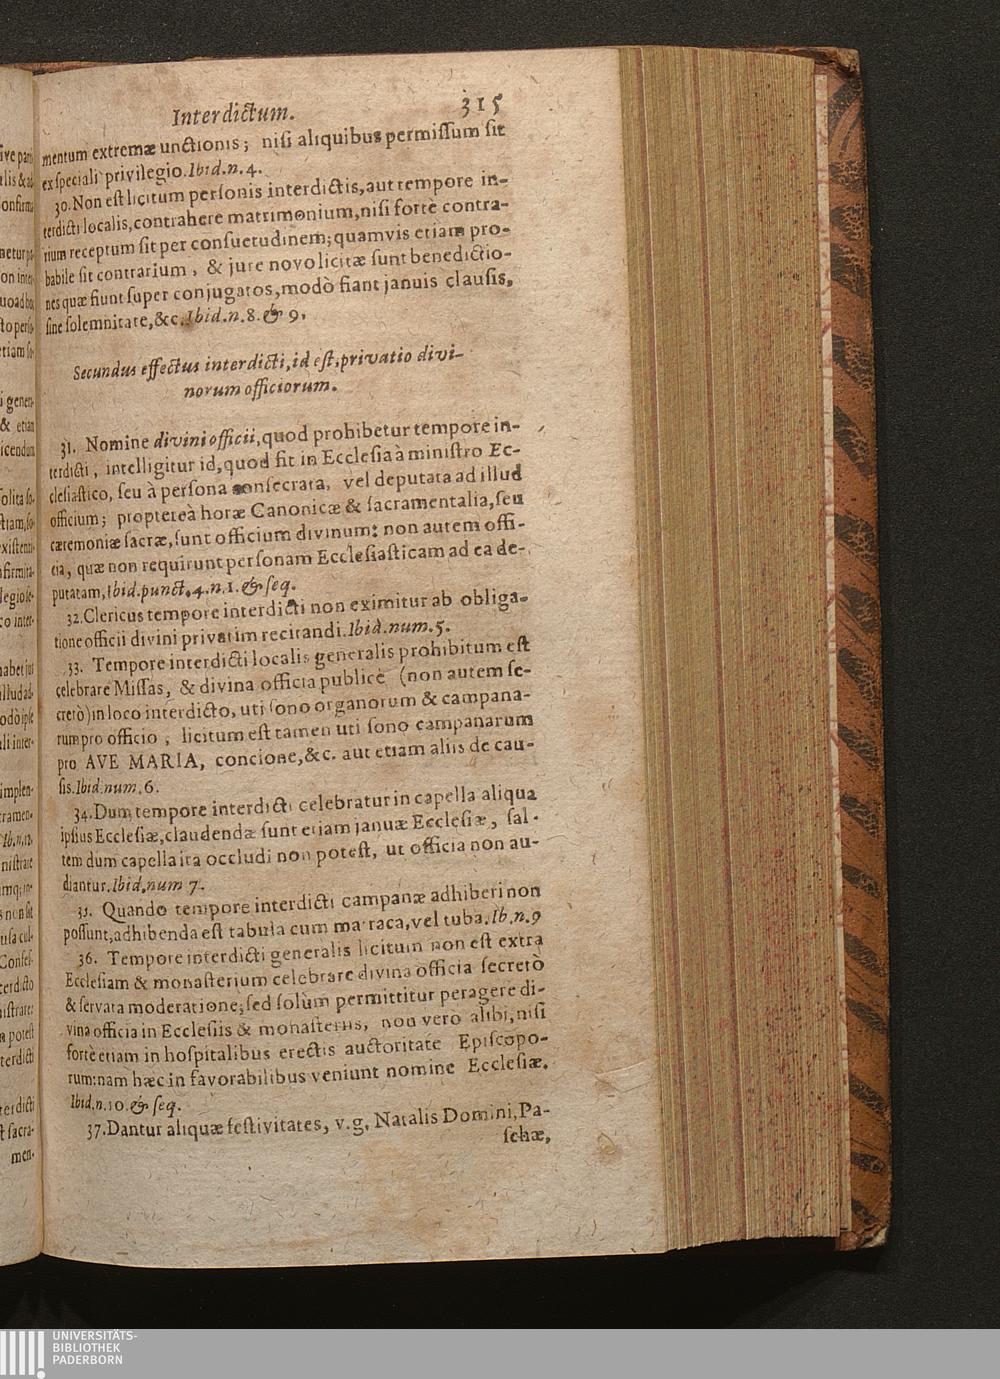 Interdictum. 315
mentum extremæ unctionis; nisi aliquibus permissum sit
ex speciali privilegio. Ibid. n. 4.
30. Non est licitum personis interdictis, aut tempore in-
terdicti localis, contrahere matrimonium, nisi fortè contra-
rium receptum sit per consuetudinem; quamvis etiam pro-
babile sit contrarium, & jure novo licitæ sunt benedictio-
nes quæ fiunt super conjugatos, modò fiant januis clausis,
sine solemnitate, &c. Ibid. n. 8. & 9.
Secundus effectus interdicti, id est, privatio divi-
norum officiorum.
31. Nomine divini officii, quod prohibetur tempore in-
terdicti, intelligitur id, quod fit in Ecclesia à ministro Ec-
clesiastico, seu à persona consecrata, vel deputata ad illud
officium; proptereà horæ Canonicæ & sacramentalia, seu
cæremoniæ sacræ, sunt officium divinum: non autem offi-
cia, quæ non requirunt personam Ecclesiasticam ad ea de-
putatam, Ibid. punct. 4. n. 1. & seq.
32. Clericus tempore interdicti non eximitur ab obliga-
tione officii divini privatim recitandi. Ibid. num. 5.
33. Tempore interdicti localis generalis prohibitum est
celebrare Missas, & divina officia publicè (non autem se-
cretò) in loco interdicto, uti sono organorum & campana-
rum pro officio, licitum est tamen uti sono campanarum
pro AVE MARIA, concione, &c. aut etiam aliis de cau-
sis. Ibid. num. 6.
34. Dum tempore interdicti celebratur in capella aliqua
ipsius Ecclesiæ, claudendæ sunt etiam januæ Ecclesiæ, sal-
tem dum capella ita occludi non potest, ut officia non au-
diantur. Ibid. num 7.
35. Quando tempore interdicti campanæ adhiberi non
possunt, adhibenda est tabula cum matraca, vel tuba. Ib. n. 9
36. Tempore interdicti generalis licitum non est extra
Ecclesiam & monasterium celebrare divina officia secretò
& servata moderatione; sed solùm permittitur peragere di-
vina officia in Ecclesiis & monasteriis, non verò alibi, nisi
fortè etiam in hospitalibus erectis auctoritate Episcopo-
rum: nam hæc in favorabilibus veniunt nomine Ecclesiæ.
Ibid. n. 10. & seq.
37. Dantur aliquæ festivitates, v.g. Natalis Domini, Pa-
schæ,
UNIVERSITÄTS-
BIBLIOTHEK
PADERBORN